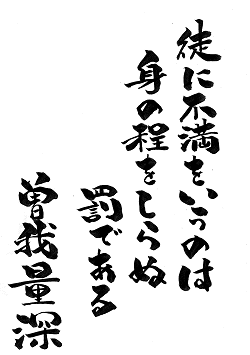 徒に不満をいうのは
身の程をしらぬ
罰である
曽我量深